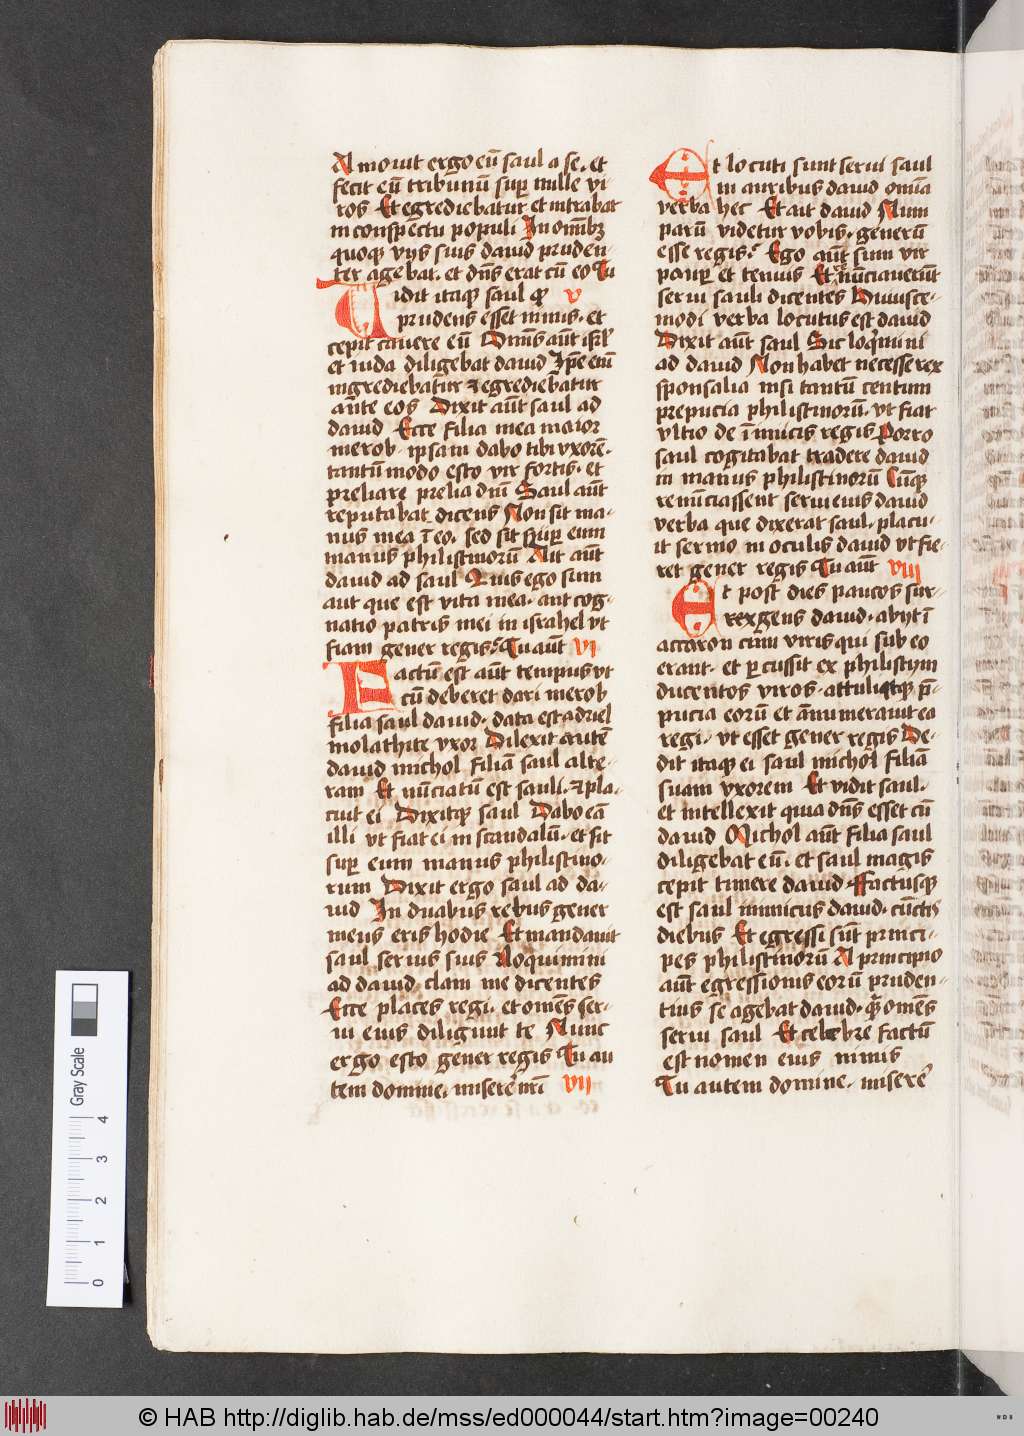 Amouit ergo eū saul a se. et
fecit eū tribunū suꝑ mille vi
ros Et egrediebatur et intrabat
in conspectu populi In omībꝫ
quoqꝫ vijs suis dauid pruden-
ter agebat. et dn̄s erat cū eo Tu
Uidit itaqꝫ saul ꝙ v
prudens esset nimis. et
cepit cauere eū Omīs aūt isrl̄
et iuda diligebat dauid Ip̄e em̄
ingrediebatur ⁊ egrediebatur
ante eos Dixit aūt saul ad
dauid Ecce filia mea maior
merob. ipsam dabo tibi vxorē.
tantū modo esto vir fortis. et
p̄reliare prelia dn̄i Saul aūt
reputabat dicens Non sit ma-
nus mea ī eo. sed sit suꝑ eum
manus philistinorū Ait aūt
dauid ad saul Quis ego sum
aut que est vita mea. aut cog-
natio patris mei in israhel vt
fiam gener regis? Tu aūt vi
Factum est aūt tempus vt
cū deberet dari merob
filia saul dauid. data est adriel
molathite vxor Dilexit autē
dauid michol filiā saul alte-
ram Et nūciatū est sauli. ⁊ pla-
cuit ei Dixitqꝫ saul Dabo eā
illi vt fiat ei in scandalū. et sit
suꝑ eum manus philistino-
rum Dixit ergo saul ad da-
uid In duabus rebus gener
meus eris hodie Et mandauit
saul seruis suis Loquimini
ad dauid clam me dicentes
Ecce places regi. et omēs ser-
ui eius diligunt te Nunc
ergo esto gener regis Tu au
tem domine. miserē nr̄i vii
Et locuti sunt serui saul
in auribus dauid omīa
verba hec Et ait dauid Num
parū videtur vobis. generū
esse regis? Ego aūt sum vir
pauꝑ et tenuis Et r̄nūciauerūt
serui sauli dicentes Huiusce-
modi verba locutus est dauid
Dixit aūt saul Sic loqͥmini
ad dauid Non habet necesse rex
sponsalia nisi tantū centum
prepucia philistinorū. vt fiat
vltio de īimicis regis Porro
saul cogitabat tradere dauid
in manus philistinorū Cūqꝫ
renūciassent serui eius dauid
verba que dixerat saul. placu-
it sermo in oculis dauid vt fie-
ret gener regis Tu aūt viii
Et post dies paucos sur-
rexgens dauid. abijt ī
accaron cum viris qui sub eo
erant. et ꝑcussit ex philistijm
ducentos viros. attulitqꝫ p̄-
pucia eorū et ānumerauit ea
regi. vt esset gener regis De-
dit itaqꝫ ei saul michol filiā
suam vxorem Et vidit saul.
et intellexit quia dn̄s esset cū
dauid Michol aūt filia saul
diligebat eū. et saul magis
cepit timere dauid Factusqꝫ
est saul inimicus dauid. cūctis
diebus Et egressi sūt princi-
pes philistinorū A principio
aūt egressionis eorū pruden-
tius se agebat dauid. qͣ omēs
serui saul Et celebre factū
est nomen eius nimis
Tu autem domine. miserē
Gray Scale
0 1 2 3 4
© HAB http://diglib.hab.de/mss/ed000044/start.htm?image=00240